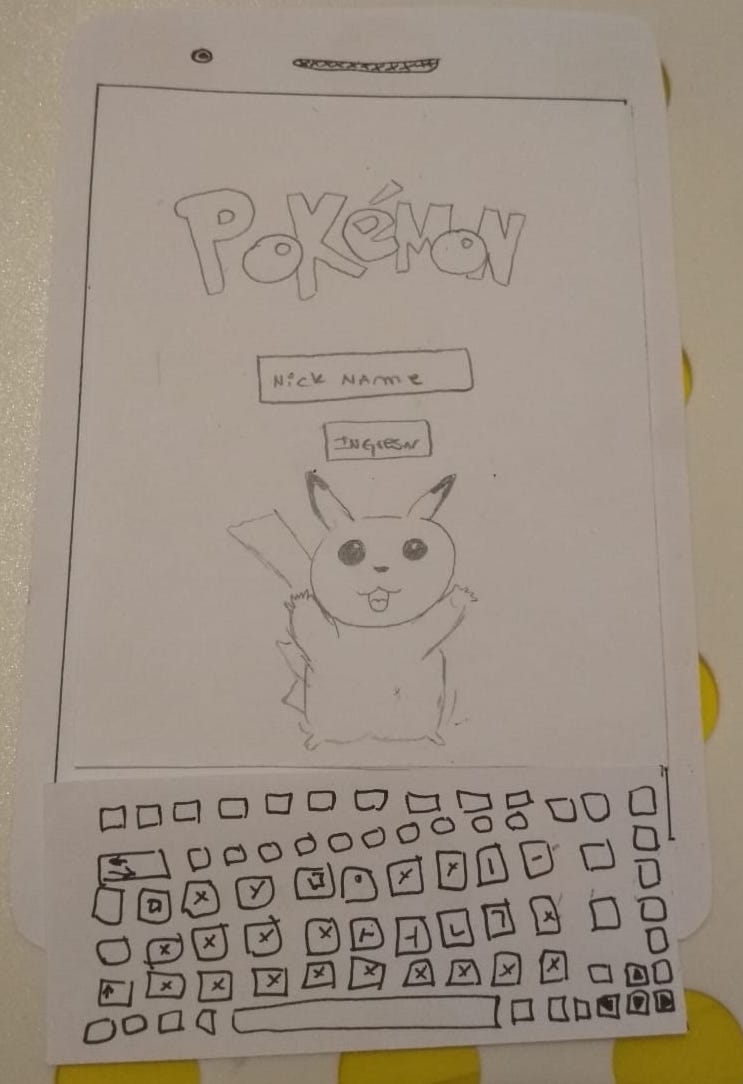 POKéMON
NicK NAme
INGresar